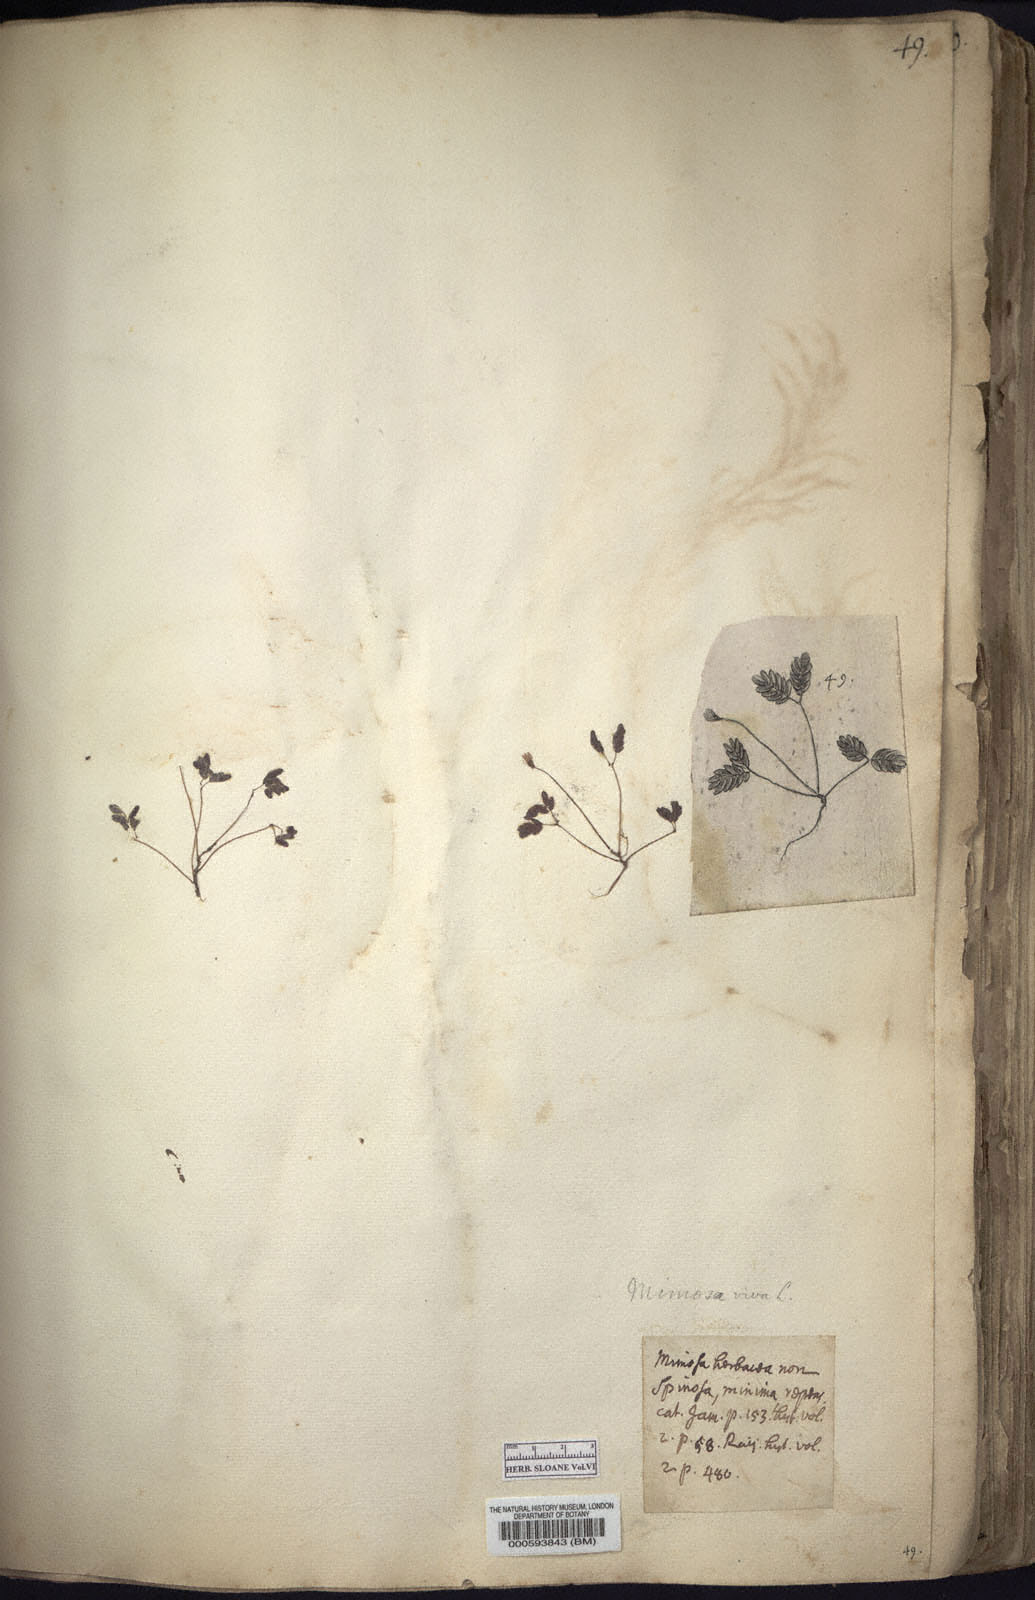 49.
49.
Mimosa viva L.
Mimosa herbacea non
Spinosa, minima repens.
cat. Jam. p. 153. hist. vol.
2. p. 58. Raij. hist. vol.
2. p. 480.
mm 1 2 3
HERB. SLOANE Vol.VI
THE NATURAL HISTORY MUSEUM, LONDON
DEPARTMENT OF BOTANY
000593843 (BM)
49.